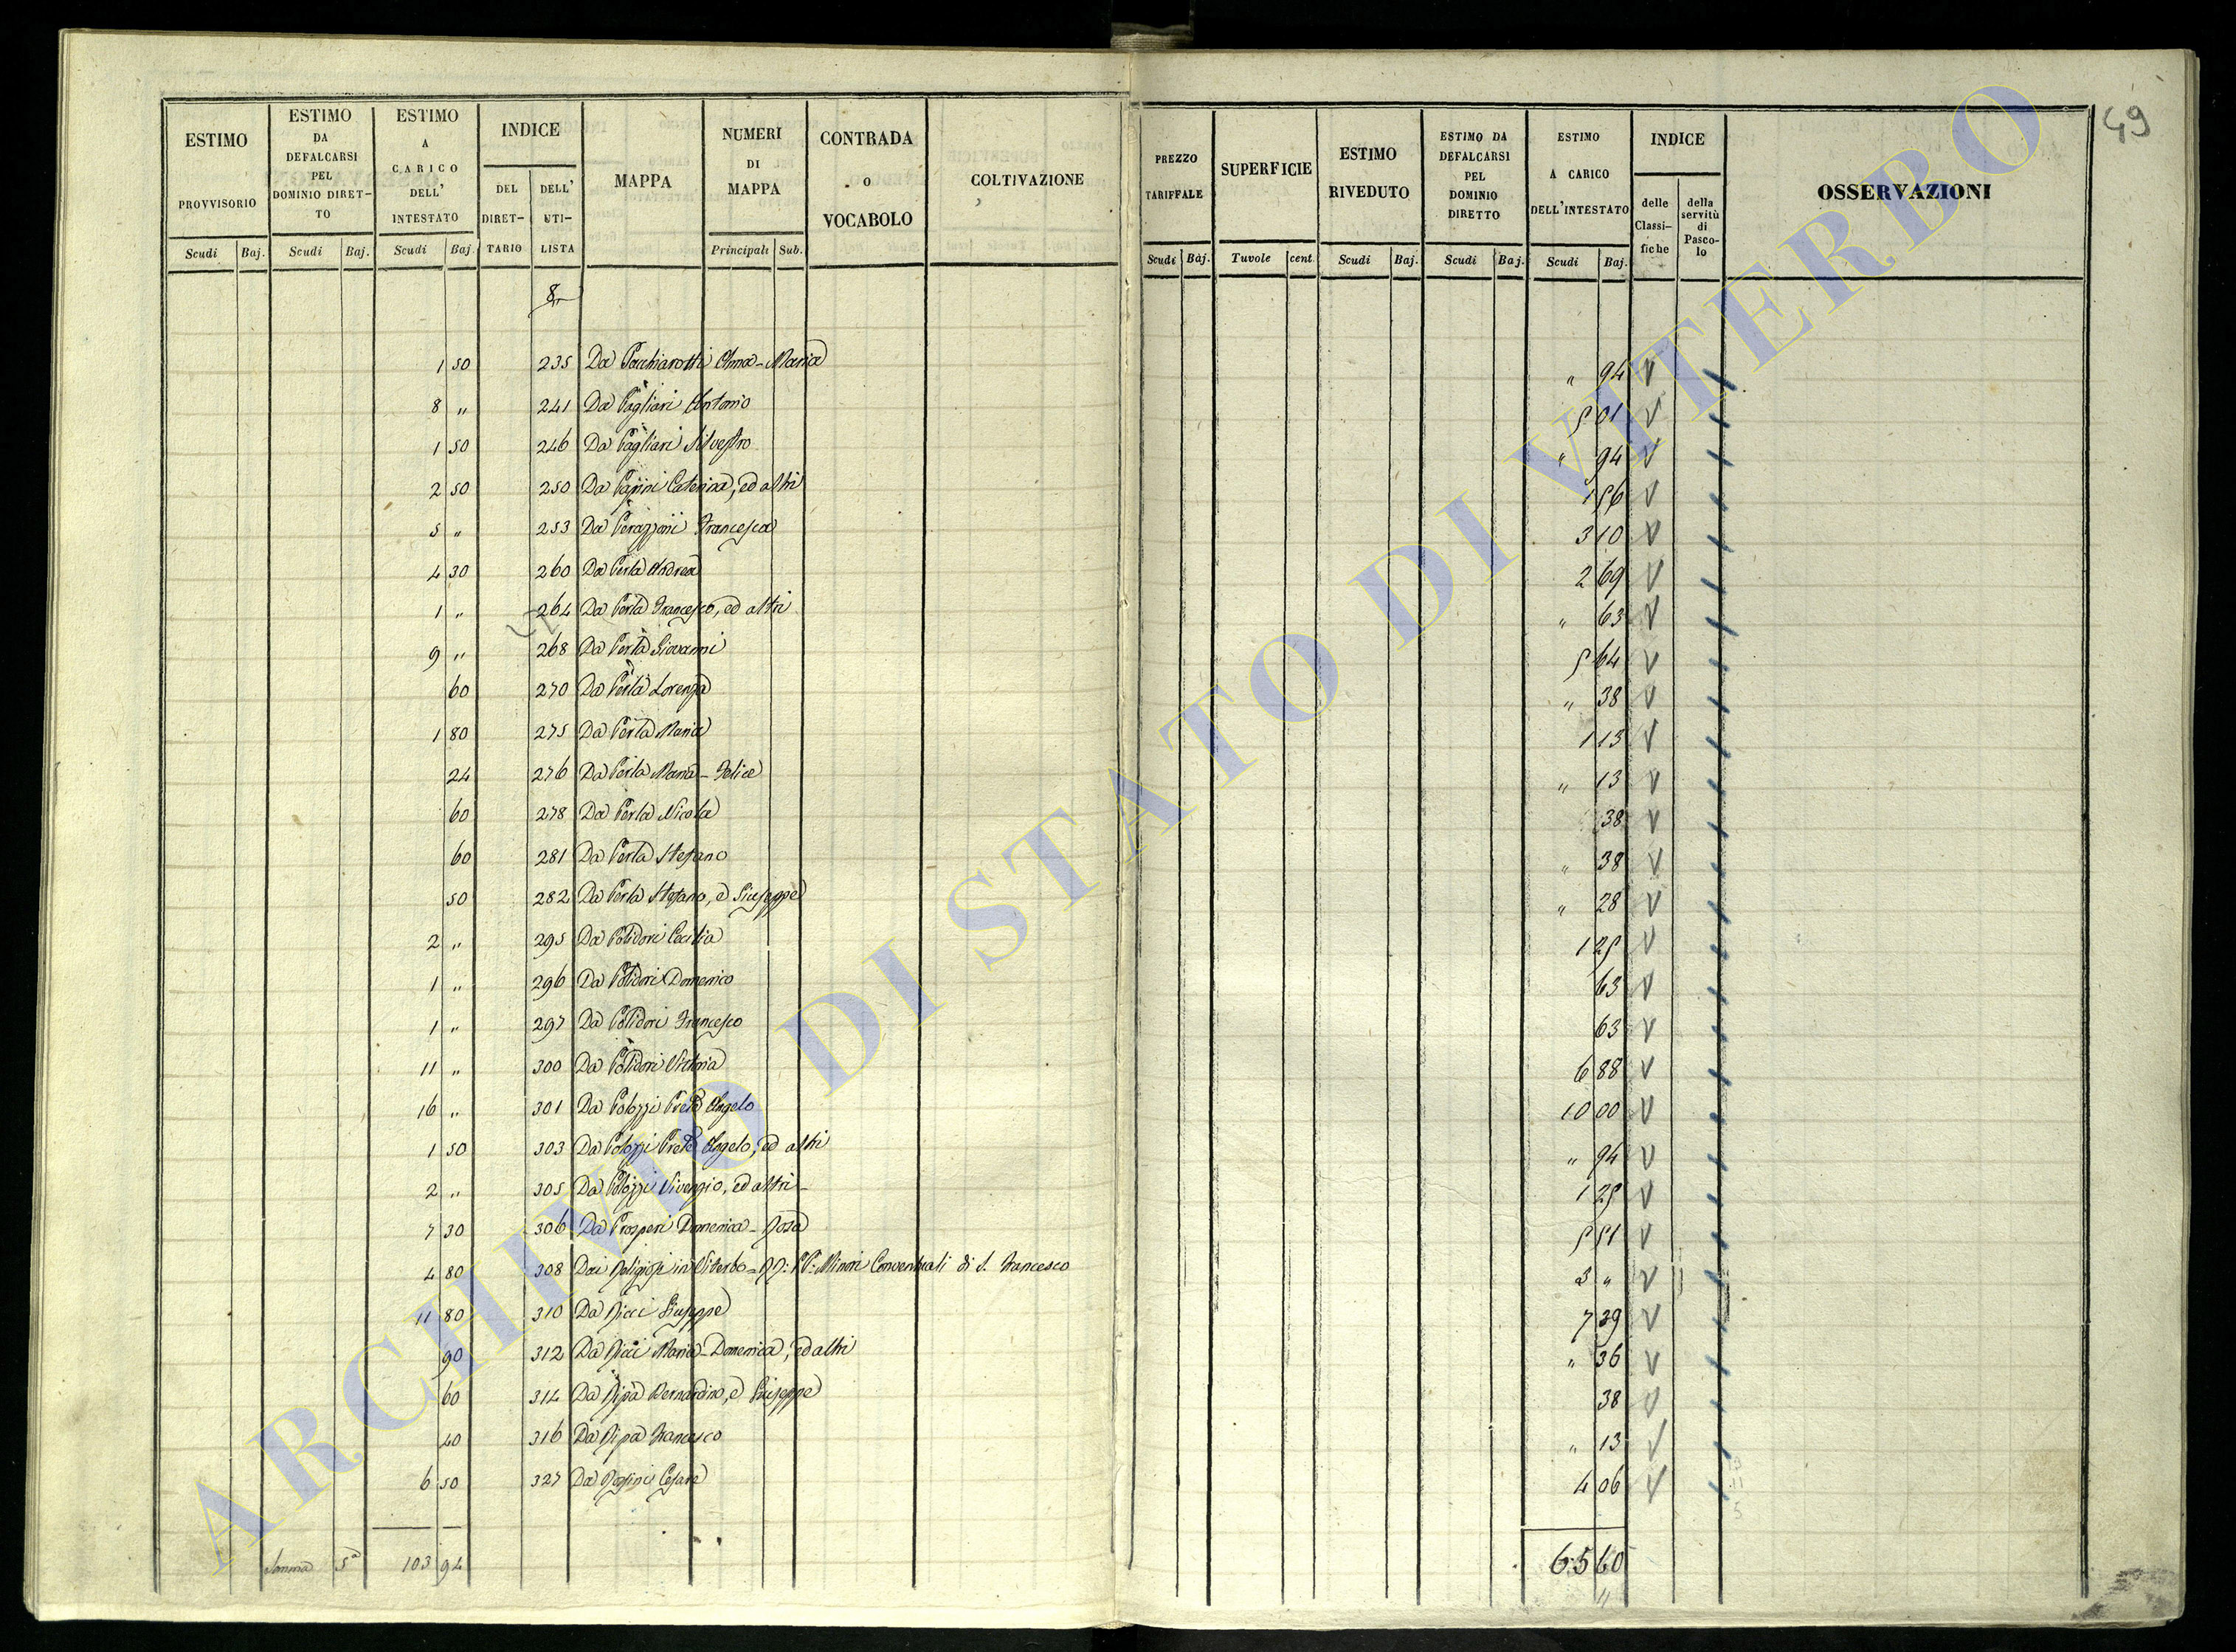 49
ESTIMO PROVVISORIO
ESTIMO DA DEFALCARSI PEL DOMINIO DIRETTO
ESTIMO A CARICO DELL' INTESTATO
INDICE
DEL DIRETTARIO
DELL' UTILISTA
MAPPA
NUMERI DI MAPPA
CONTRADA o VOCABOLO
COLTIVAZIONE
PREZZO TARIFFALE
SUPERFICIE
ESTIMO RIVEDUTO
ESTIMO DA DEFALCARSI PEL DOMINIO DIRETTO
ESTIMO A CARICO DELL'INTESTATO
INDICE
delle Classifiche
della servitù di Pascolo
OSSERVAZIONI
Scudi Baj. Scudi Baj. Scudi Baj. Principali Sub.
Scudi Baj. Tuvole cent. Scudi Baj. Scudi Baj. Scudi Baj.
8
1 50 235 Da Pacchiarotti Anna-Maria " 94
8 " 241 Da Pagliari Antonio 5 01
1 50 246 Da Pagliari Silvestro " 94
2 50 250 Da Papini Caterina, ed altri 1 56
5 " 253 Da Perazzoni Francesca 3 10
4 30 260 Da Perla Andrea 2 69
1 " 264 Da Perla Francesco, ed altri " 63
9 " 268 Da Perla Giovanni 5 64
60 270 Da Perla Lorenza " 38
1 80 275 Da Perla Maria 1 13
24 276 Da Perla Maria-Felice " 13
60 278 Da Perla Nicola 38
60 281 Da Perla Stefano " 38
50 282 Da Perla Stefano, e Giuseppe " 28
2 " 295 Da Polidori Cecilia 1 25
1 " 296 Da Polidori Domenico 63
1 " 297 Da Polidori Francesco 63
11 " 300 Da Polidori Vittoria 6 88
16 " 301 Da Polozzi Prete Angelo 10 00
1 50 303 Da Polozzi Prete Angelo, ed altri " 94
2 " 305 Da Polozzi Vivenzio, ed altri 1 25
7 30 306 Da Prosperi Domenica-Rosa 5 51
4 80 308 Dai Religiosi in Viterbo = RR: PP: Minori Conventuali di S. Francesco 3 "
11 80 310 Da Ricci Giuseppe 7 39
90 312 Da Ricci Maria-Domenica, ed altri " 36
60 314 Da Ripa Bernardino, e Giuseppe 38
40 316 Da Ripa Francesco " 13
6 50 327 Da Rosini Cesare 4 06
Somma Sa 103 94 65 60
ARCHIVIO DI STATO DI VITERBO